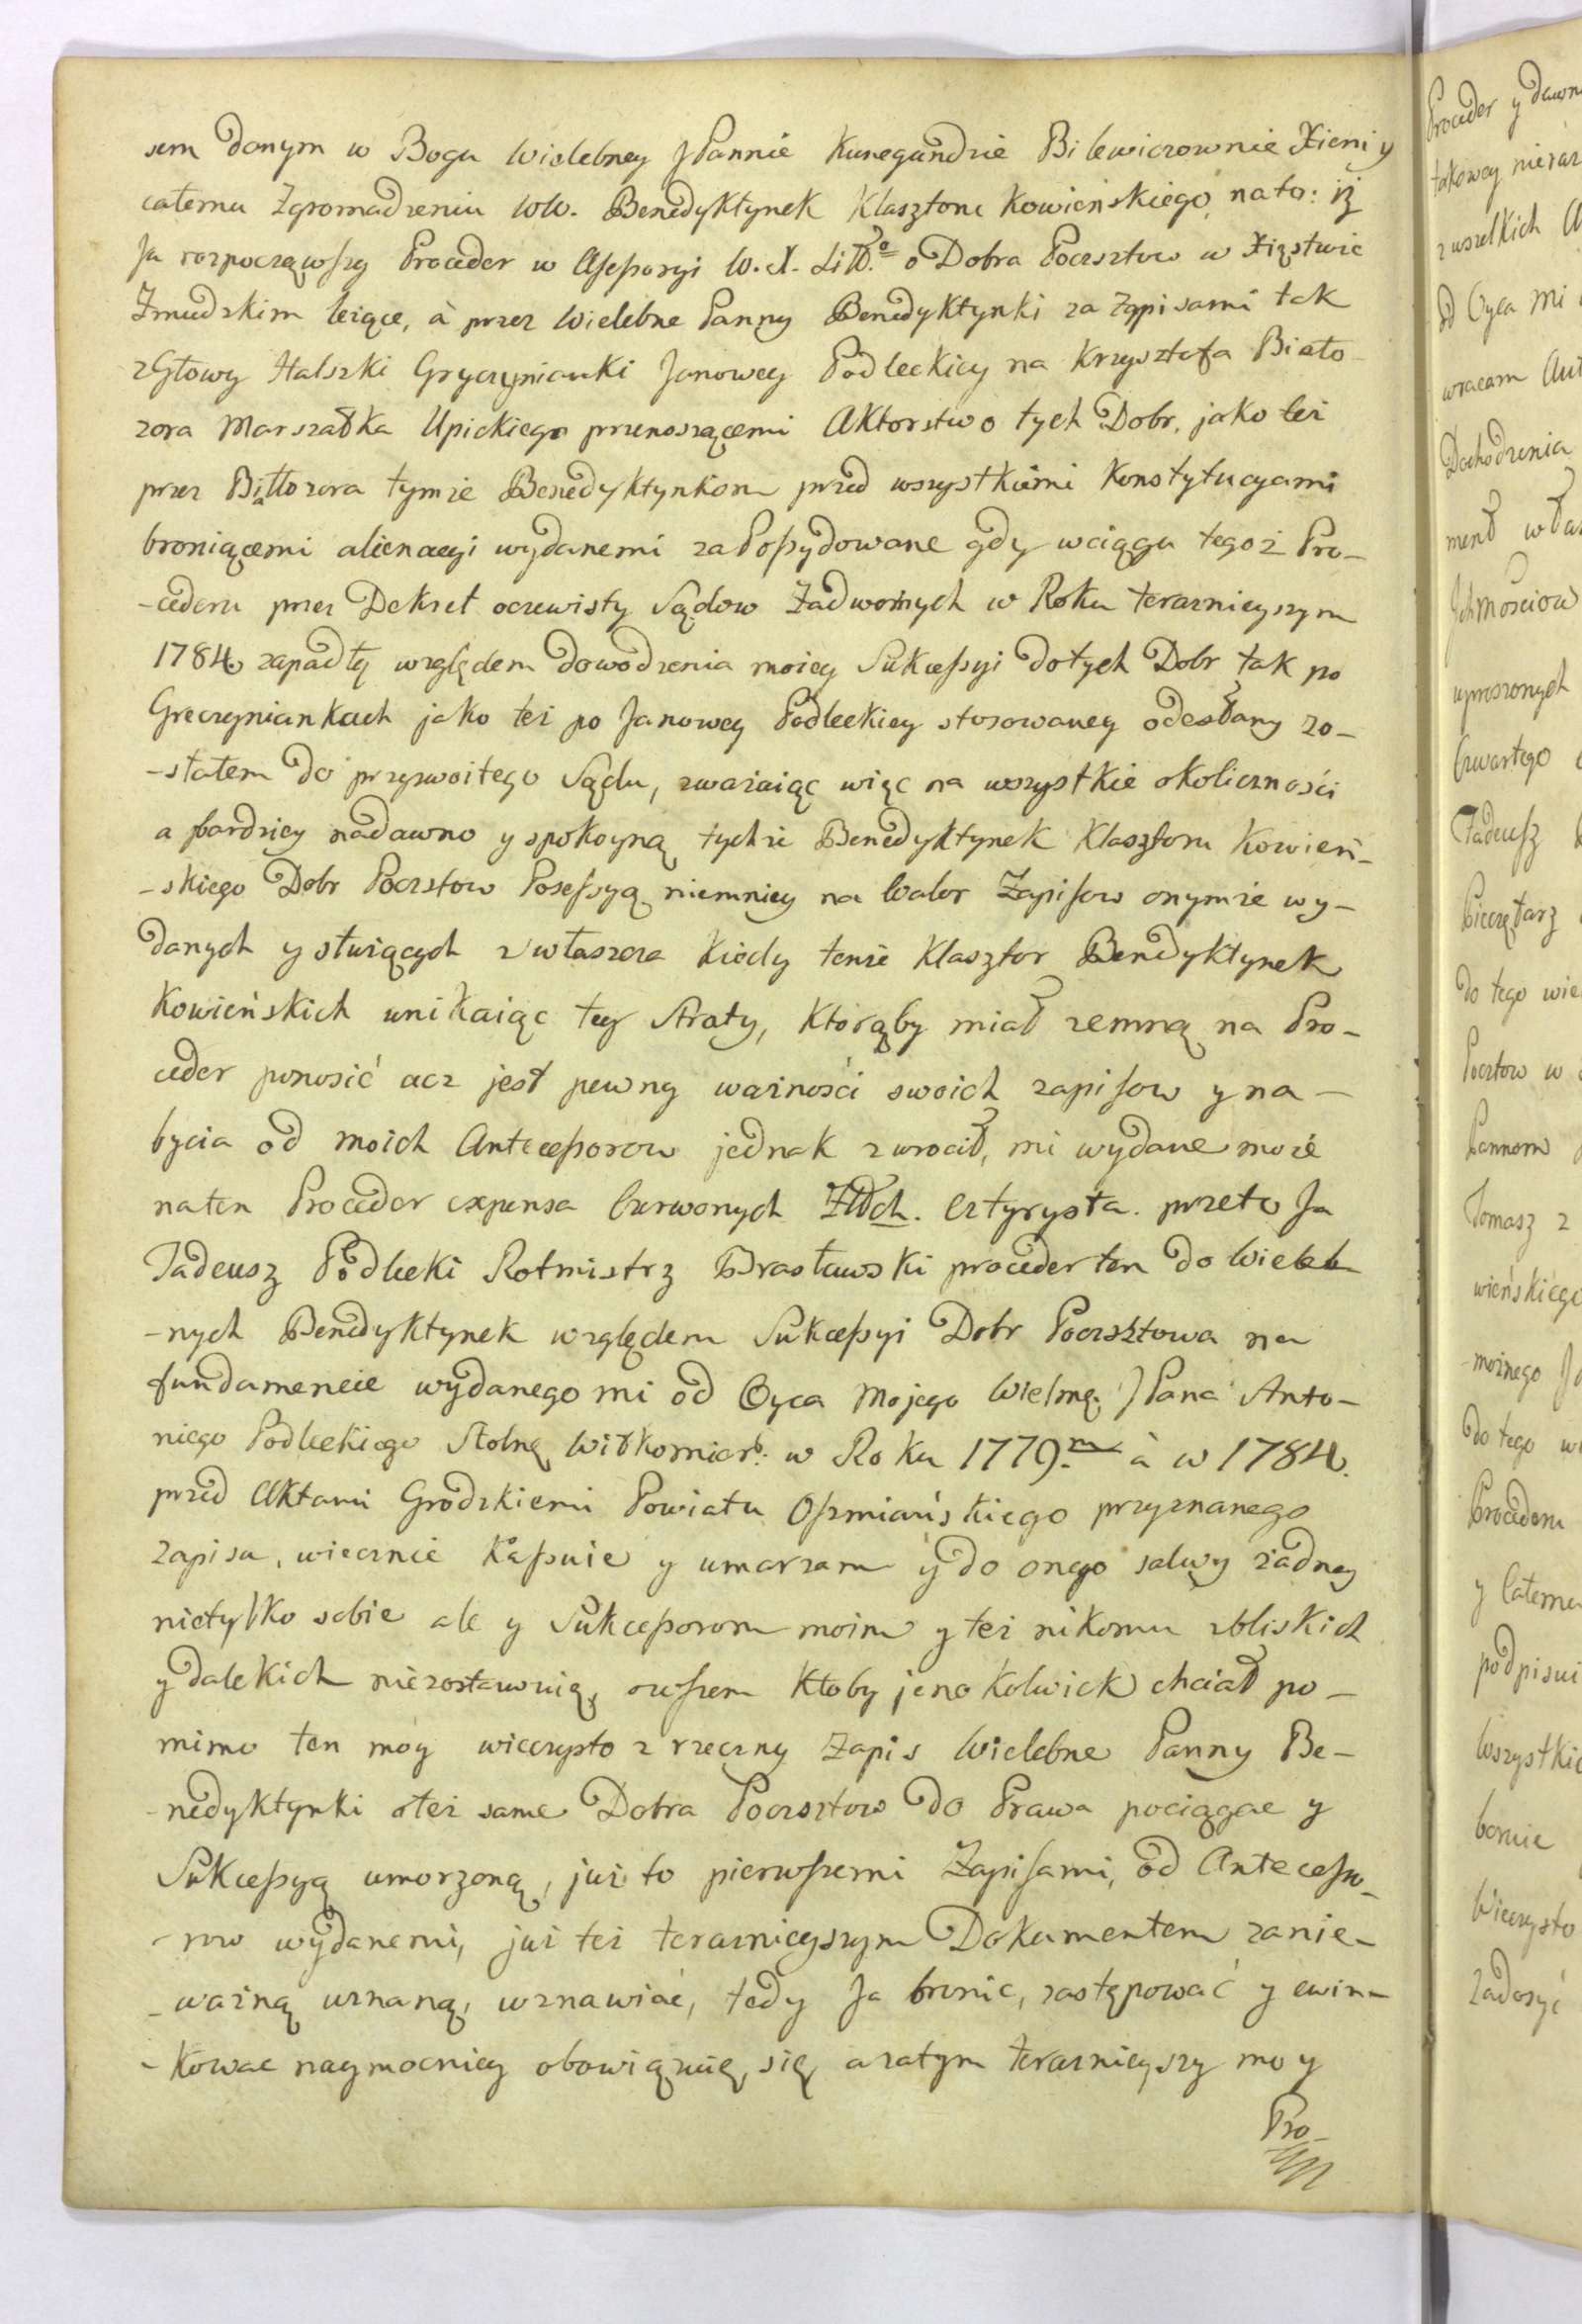 sem danym w Bogu Wielebney JPannie Kunegundzie Bilewiczownie Xieni y
całemu Zgromadzeniu WW. Benedyktynek Klasztoru Kowieńskiego na to: iż
Ja rozpocząwszy Proceder w Assessoryi W. X. Litt.o o Dobra Poczsztow w Xięstwie
Zmudzkim leżące, à przez Wielebne Panny Benedyktynki za Zapisami tak
z Głowy Halszki Gryczynianki Janowey Podleckiey na Krzysztofa Biało-
zora Marszałka Upickiego przenoszącemi Aktorstwo tych Dobr, jako też
przez Białłozora tymże Benedyktynkom przed wszystkiemi Konstytucyami
broniącemi alienacyi wydanemi zaPossydowane gdy wciągu tegoż Pro-
-cederu przez Dekret oczewisty Sądow Zadwornych w Roku teraznieyszym
1784 zapadłę względem dowodzenia moiey Sukcessyi do tych Dobr tak po
Greczyniankach jako też po Janowey Podleckiey stosowaney odesłany zo-
-stałem do przyzwoitego Sądu, zważaiąc więc na wszystkie okoliczności
a bardziey nadawno y spokoyną tychże Benedyktynek Klasztoru Kowień-
-skiego Dobr Poczstow Possessyą niemniey na Walor Zapisow onymże wy-
danych y służących zwłaszcza kiedy tenże Klasztor Benedyktynek
Kowieńskich unikaiąc tey Straty, ktorąby miał zemną na Pro-
ceder ponosić acz jest pewny ważności swoich zapisow y na-
bycia od moich Antecessorow jednak zwrocił mi wydane moie
na ten Proceder expensa Czerwonych Złłch. Cztyrysta. przeto Ja
Tadeusz Podlecki Rotmistrz Brasławski proceder ten do Wieleb
-nych Benedyktynek względem Sukcessyi Dobr Poczsztowa na
fundamencie wydanego mi od Oyca Mojego Wielmę. JPana Anto-
niego Podleckiego Stolnę Wiłkomier: w Roku 1779.m à w 1784.
przed Aktami Grodzkiemi Powiatu Oszmiańskiego przyznanego
zapisu, wiecznie Kassuie y umarzam y do onego salwy żadney
nietylko sobie ale y Sukcessorom moim y też nikomu zbliskich
y dalekich niezostawuię, owszem ktoby jeno kolwiek chciał po-
mimo ten moy wieczysto zrzeczny Zapis Wielebne Panny Be-
-nedyktynki oteż same Dobra Poczsztow do Prawa pociągac y
Sukcessyą umorzoną, już to pierwszemi Zapisami, od Antecesso-
-row wydanemi, już też terazniejszym Dokumentem zanie-
-ważną uznaną, wznawiać, tedy Ja bronic, zastępować y ewin-
-kowac naymocniey obowiązuię się, azatym terazniejszy moy
Pro-
Proceder y dawn
takowey nieraz
zwszelkich
od Oyca Mi
wracam
Dochodzenia
ment wła
Jchmościow
uproszonych
Czwartego
Tadeusz
Pieczętarz
do tego wie
Pocztow w
Pannom
Tomasz z
wieńskiego
-możnego
do tego w
Procederu
y Całemu
podpisui
Wszystkie
Wieczysto
Zadosyć